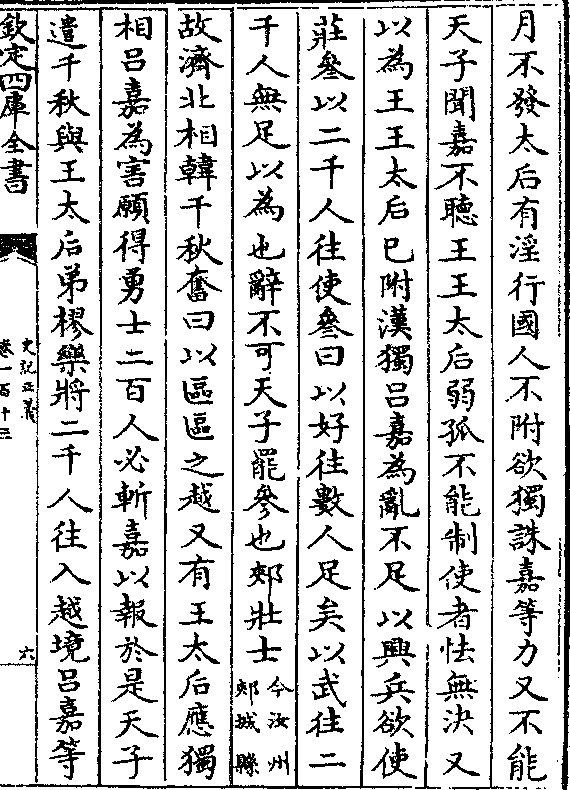 月不發太后有淫行國人不附欲獨誅嘉等力又不能
天子聞嘉不聽王王太后弱孤不能制使者怯無決又
以為王王太后巳附漢獨吕嘉為亂不足以興兵欲使
莊參以二千人往使參曰以好往數人足矣以武往二
千人無足以為也辭不可天子罷參也郟壯士今汝州郟城縣
故濟北相韓千秋奮曰以區區之越又有王太后應獨
相吕嘉為害願得勇士二百人必斬嘉以報於是天子
遣千秋與王太后弟樛樂將二千人往入越境吕嘉等
欽定四庫全書
史記正義
卷一百十三
六